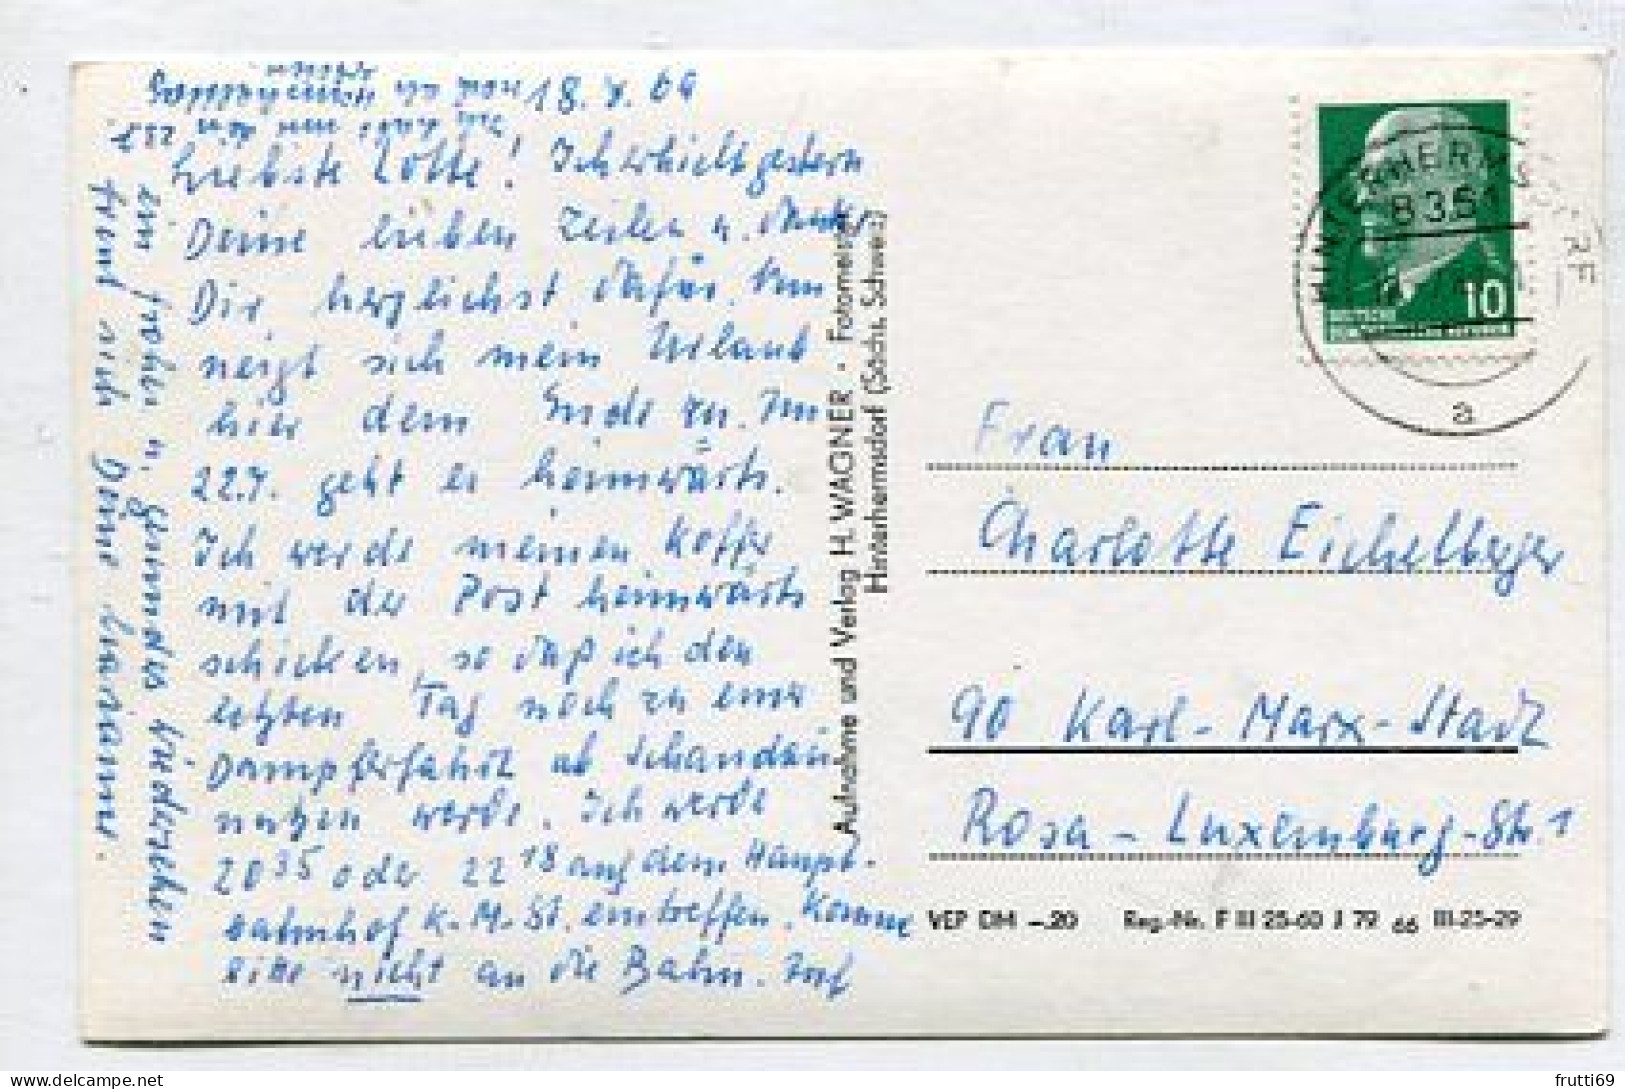 18. 7. 69
Liebste Lotte! Ich erhielt gestern
Deine lieben Zeilen u. danke
Dir herzlichst dafür. Nun
neigt sich mein Urlaub
hier dem Ende zu. Am
22.7. geht es heimwärts.
Ich werde meinen Koffer
mit der Post heimwärts
schicken, so daß ich den
letzten Tag noch zu einer
Dampferfahrt ab Schandau
nutzen werde. Ich werde
20 35 oder 22 18 auf dem Haupt-
bahnhof K.-M.-St. eintreffen. Komme
bitte nicht an die Bahn. Auf
ein frohes u. gesundes Wiedersehen
freut sich Deine
Aufnahme und Verlag H. WAGNER · Fotomeister
Hinterhermsdorf (Sächs. Schweiz)
HINTERHERMSDORF
8361
a
10
Frau
Charlotte Eichelberger
90 Karl-Marx-Stadt
Rosa-Luxemburg-Str. 1
VEP DM -.20 Reg.-Nr. F III 25-60 J 79 66 III-25-29
frutti69